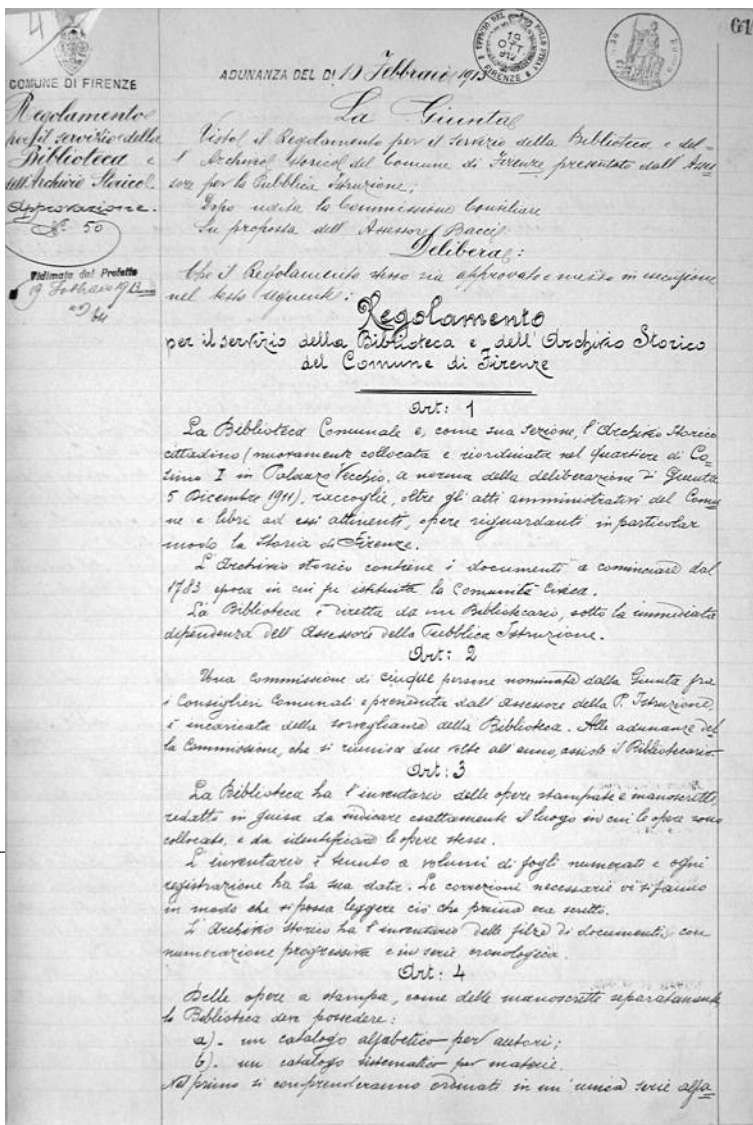 4
61
COMUNE DI FIRENZE
ADUNANZA DEL DI 15 Febbraio 1913
UFFICIO DEL BOLLO
19
OTT
912
FIRENZE
Regolamento
per il servizio della
Biblioteca e
dell'Archivio Storico.
Approvazione.
N.º 50
Vidimata dal Prefetto
19 Febbraio 1913
La Giunta
Visto il Regolamento per il servizio della Biblioteca e del-
l'Archivio storico del Comune di Firenze presentato dall'Asses-
sore per la Pubblica Istruzione;
Dopo udita la Commissione Consiliare
Su proposta dell'Assessore Bacci;
Delibera:
Che il Regolamento stesso sia approvato e messo in esecuzione
nel testo seguente:
Regolamento
per il servizio della Biblioteca e dell'Archivio Storico
del Comune di Firenze
Art: 1
La Biblioteca Comunale e, come sua sezione, l'Archivio storico
cittadino (nuovamente collocata e riordinata nel quartiere di Co-
simo I in Palazzo Vecchio, a norma della deliberazione di Giunta
5 Dicembre 1911), raccoglie, oltre gli atti amministrativi del Comu-
ne e libri ad essi attinenti, opere riguardanti in particolar
modo la storia di Firenze.
L'Archivio storico contiene i documenti a cominciare dal
1783 epoca in cui fu istituita la Comunità Civica.
La Biblioteca è diretta da un Bibliotecario, sotto la immediata
dependenza dell'Assessore della Pubblica Istruzione.
Art: 2
Una commissione di cinque persone nominata dalla Giunta fra
i Consiglieri Comunali e presieduta dall'Assessore della P. Istruzione,
è incaricata della sorveglianza della Biblioteca. Alle adunanze del-
la Commissione, che si riunisce due volte all'anno, assiste il Bibliotecario.
Art: 3
La Biblioteca ha l'inventario delle opere stampate e manoscritte,
redatto in guisa da indicare esattamente il luogo in cui le opere sono
collocate, e da identificare le opere stesse.
L'inventario è tenuto a volumi di fogli numerati e ogni
registrazione ha la sua data. Le correzioni necessarie vi si fanno
in modo che si possa leggere ciò che prima era scritto.
L'Archivio storico ha l'inventario delle filze di documenti, con
numerazione progressiva e in serie cronologica.
Art: 4
Delle opere a stampa, come delle manoscritte separatamente
la Biblioteca deve possedere:
a). un catalogo alfabetico per autori;
b). un catalogo sistematico per materie.
Nel primo si comprenderanno ordinati in un'unica serie alfa-